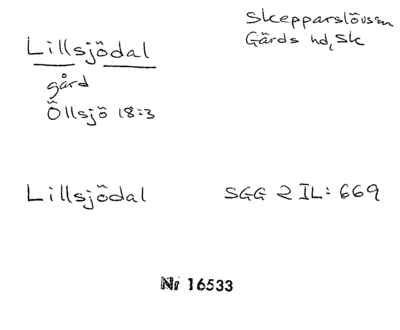 Skepparslövsn
Gärds hd, Sk
Lillsjödal
gård
Öllsjö 18:3
Lillsjödal SGG 2 IL: 669
Nr 16533